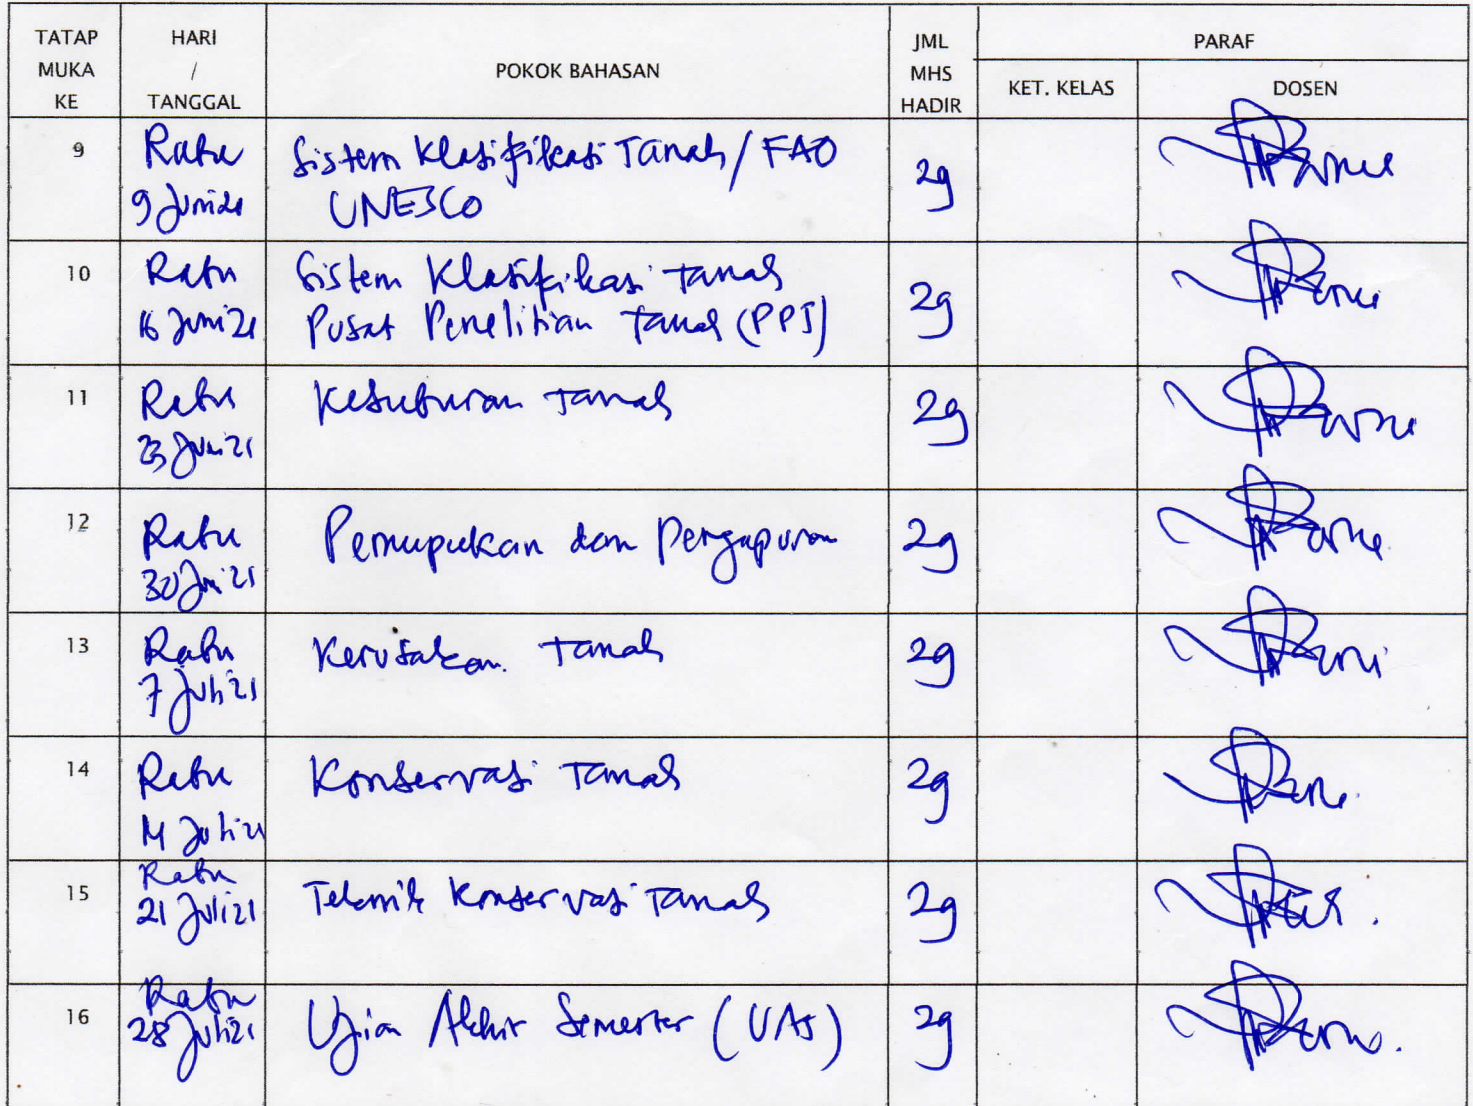 TATAP MUKA KE
HARI / TANGGAL
POKOK BAHASAN
JML MHS HADIR
PARAF
KET. KELAS
DOSEN
9
Rabu
9 Juni 21
Sistem Klasifikasi Tanah / FAO
UNESCO
29
10
Rabu
16 Juni 21
Sistem Klasifikasi Tanah
Pusat Penelitian Tanah (PPT)
29
11
Rabu
23 Juni 21
Kesuburan Tanah
29
12
Rabu
30 Juni 21
Pemupukan dan Pengapuran
29
13
Rabu
7 Juli 21
Kerusakan Tanah
29
14
Rabu
14 Juli 21
Konservasi Tanah
29
15
Rabu
21 Juli 21
Teknik Konservasi Tanah
29
16
Rabu
28 Juli 21
Ujian Akhir Semester (UAS)
29